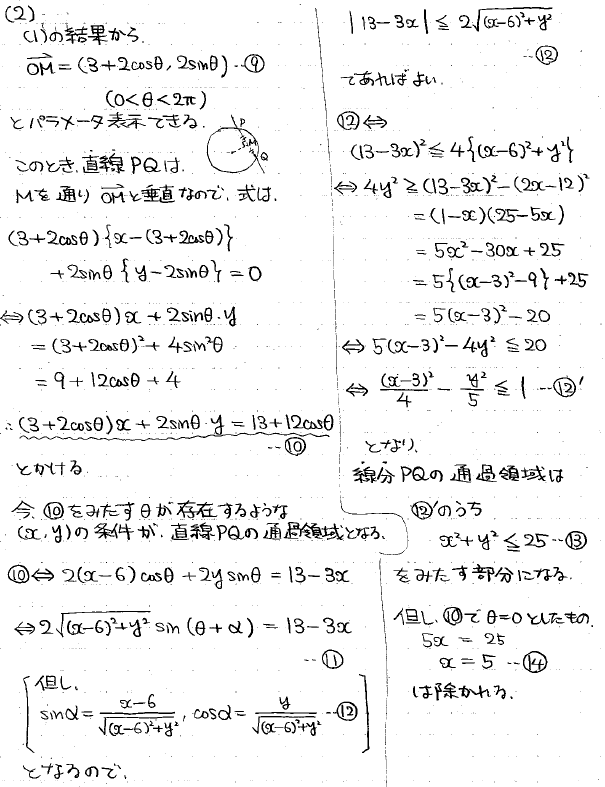 (2)
(1)の結果から、
OM = (3+2cosθ, 2sinθ) --⑨
(0<θ<2π)
とパラメータ表示できる。
P
M
Q
このとき、直線PQは、
Mを通り OMと垂直なので、式は、
(3+2cosθ){x-(3+2cosθ)}
+2sinθ{y-2sinθ} = 0
⇔(3+2cosθ)x + 2sinθ・y
= (3+2cosθ)² + 4sin²θ
= 9 + 12cosθ + 4
∴(3+2cosθ)x + 2sinθ・y = 13+12cosθ
--⑩
とかける。
今、⑩をみたすθが存在するような
(x,y)の条件が、直線PQの通過領域となる。
⑩⇔ 2(x-6)cosθ + 2y sinθ = 13-3x
⇔2√((x-6)²+y²) sin(θ+α) = 13-3x
--⑪
但し、
sinα = (x-6)/√((x-6)²+y²), cosα = y/√((x-6)²+y²) --⑫
となるので、
|13-3x| ≦ 2√((x-6)²+y²)
--⑫
であればよい。
⑫⇔
(13-3x)² ≦ 4{(x-6)²+y²}
⇔ 4y² ≧ (13-3x)²-(2x-12)²
= (1-x)(25-5x)
= 5x²-30x+25
= 5{(x-3)²-9}+25
= 5(x-3)²-20
⇔ 5(x-3)²-4y² ≦ 20
⇔ (x-3)²/4 - y²/5 ≦ 1 --⑫'
となり、
線分PQの通過領域は
⑫'のうち
x²+y² ≦ 25 --⑬
をみたす部分になる。
但し、⑩でθ=0としたもの、
5x = 25
x = 5 --⑭
は除かれる。